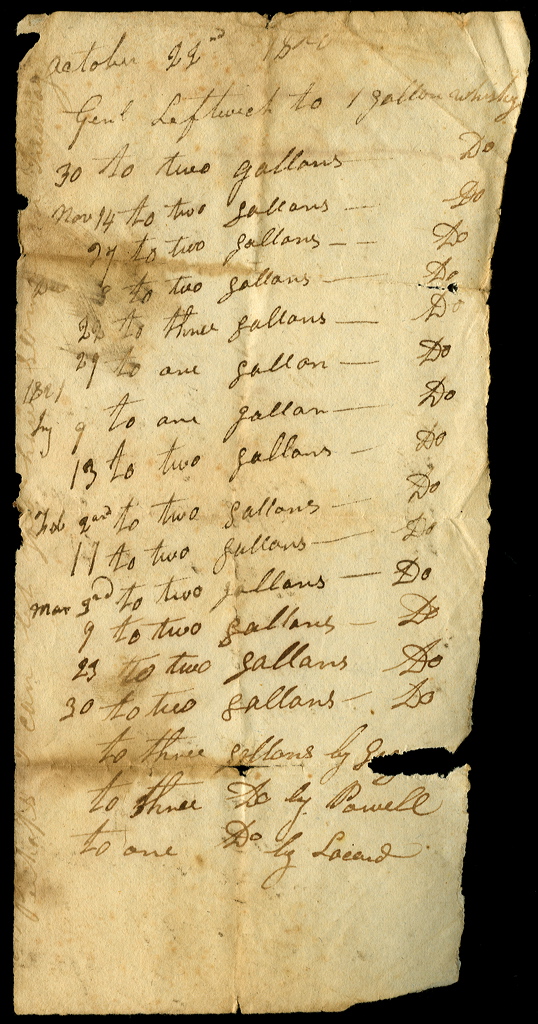 October 22nd 1820
Genl Leftwich to 1 gallon whisky
30 to two gallons — Do
Nov 14 to two gallons — Do
27 to two gallons — Do
8 to two gallons — Do
22 to three gallons — Do
29 to one gallon — Do
1821
Jny 9 to one gallon — Do
13 to two gallons — Do
Feb 2nd to two gallons — Do
17 to two gallons — Do
Mar 3rd to two gallons — Do
9 to two gallons — Do
23 to two gallons Do
30 to two gallons — Do
to three gallons by
to three Do by Powell
to one Do by